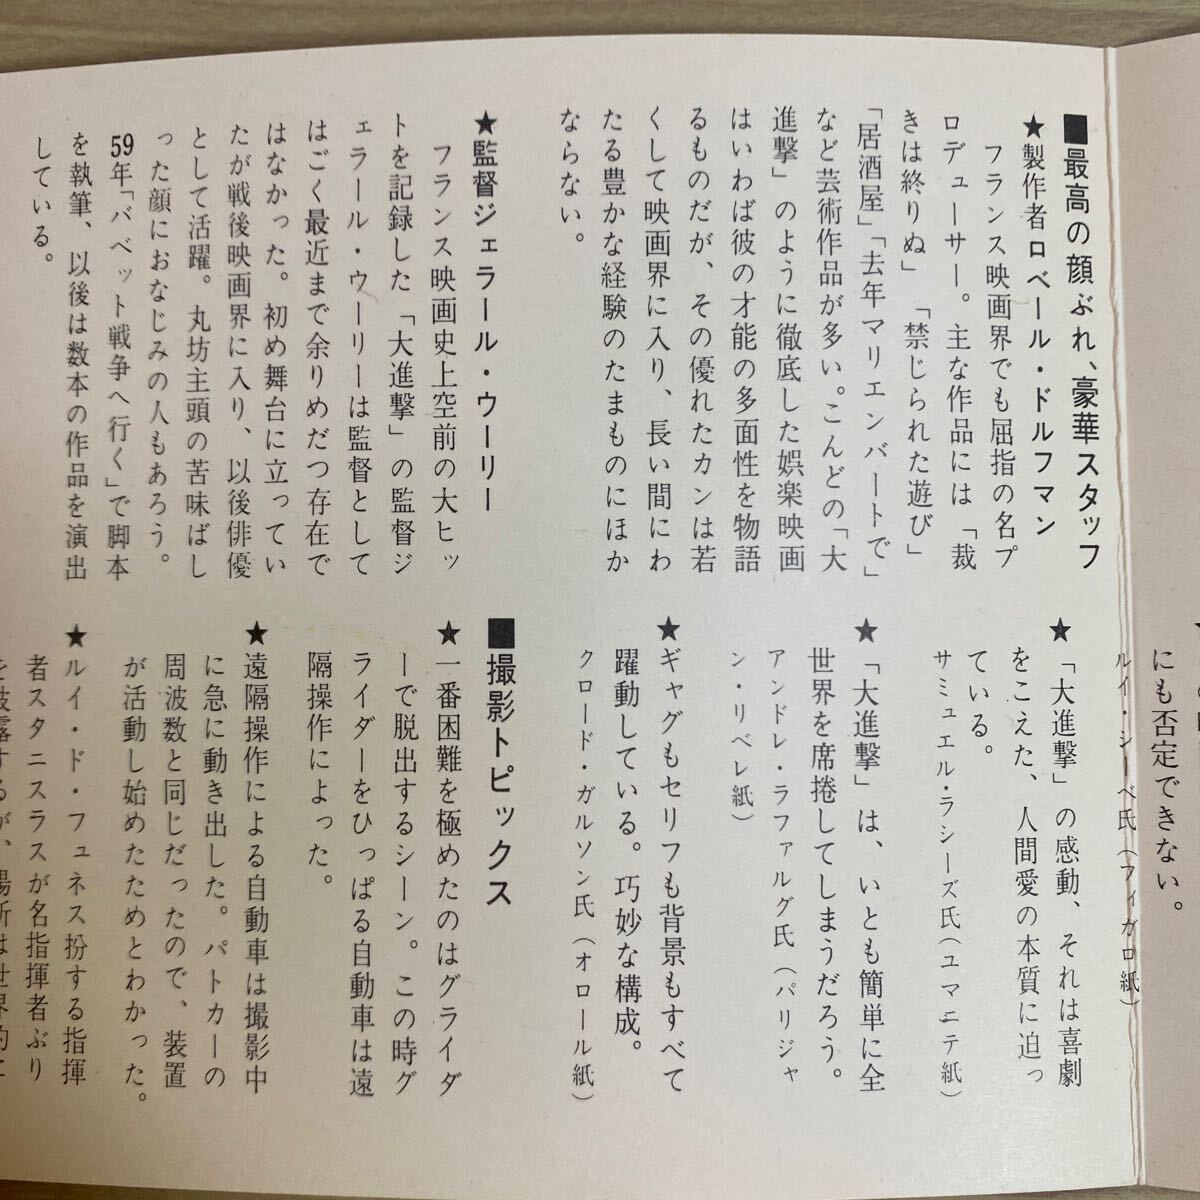 にも否定できない。
ルイ・シーベ氏（フィガロ紙）
■最高の顔ぶれ、豪華スタッフ
★製作者ロベール・ドルフマン
フランス映画界でも屈指の名プ
ロデューサー。主な作品には「裁
きは終りぬ」「禁じられた遊び」
「居酒屋」「去年マリエンバートで」
など芸術作品が多い。こんどの「大
進撃」のように徹底した娯楽映画
はいわば彼の才能の多面性を物語
るものだが、その優れたカンは若
くして映画界に入り、長い間にわ
たる豊かな経験のたまものにほか
ならない。
★監督ジェラール・ウーリー
フランス映画史上空前の大ヒッ
トを記録した「大進撃」の監督ジ
ェラール・ウーリーは監督として
はごく最近まで余りめだつ存在で
はなかった。初め舞台に立ってい
たが戦後映画界に入り、以後俳優
として活躍。丸坊主頭の苦味ばし
った顔におなじみの人もあろう。
59年「バベット戦争へ行く」で脚本
を執筆、以後は数本の作品を演出
している。
★「大進撃」の感動、それは喜劇
をこえた、人間愛の本質に迫っ
ている。
サミュエル・ラシーズ氏（ユマニテ紙）
★「大進撃」は、いとも簡単に全
世界を席捲してしまうだろう。
アンドレ・ラファルグ氏（パリジャ
ン・リベレ紙）
★ギャグもセリフも背景もすべて
躍動している。巧妙な構成。
クロード・ガルソン氏（オロール紙）
■撮影トピックス
★一番困難を極めたのはグライダ
ーで脱出するシーン。この時グ
ライダーをひっぱる自動車は遠
隔操作によった。
★遠隔操作による自動車は撮影中
に急に動き出した。パトカーの
周波数と同じだったので、装置
が活動し始めたためとわかった。
★ルイ・ド・フュネス扮する指揮
者スタニスラスが名指揮者ぶり
を披露するが、場所は世界的に